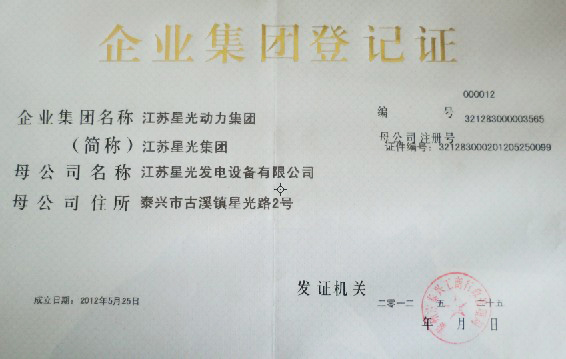 企业集团登记证
000012
企业集团名称 江苏星光动力集团
编 号 321283000003565
（简称）江苏星光集团
母公司注册号
证件编号：321283000201205250099
母公司名称 江苏星光发电设备有限公司
母公司住所 泰兴市古溪镇星光路2号
发证机关
成立日期：2012年5月25日
二零一二 五 二十五
年 月 日